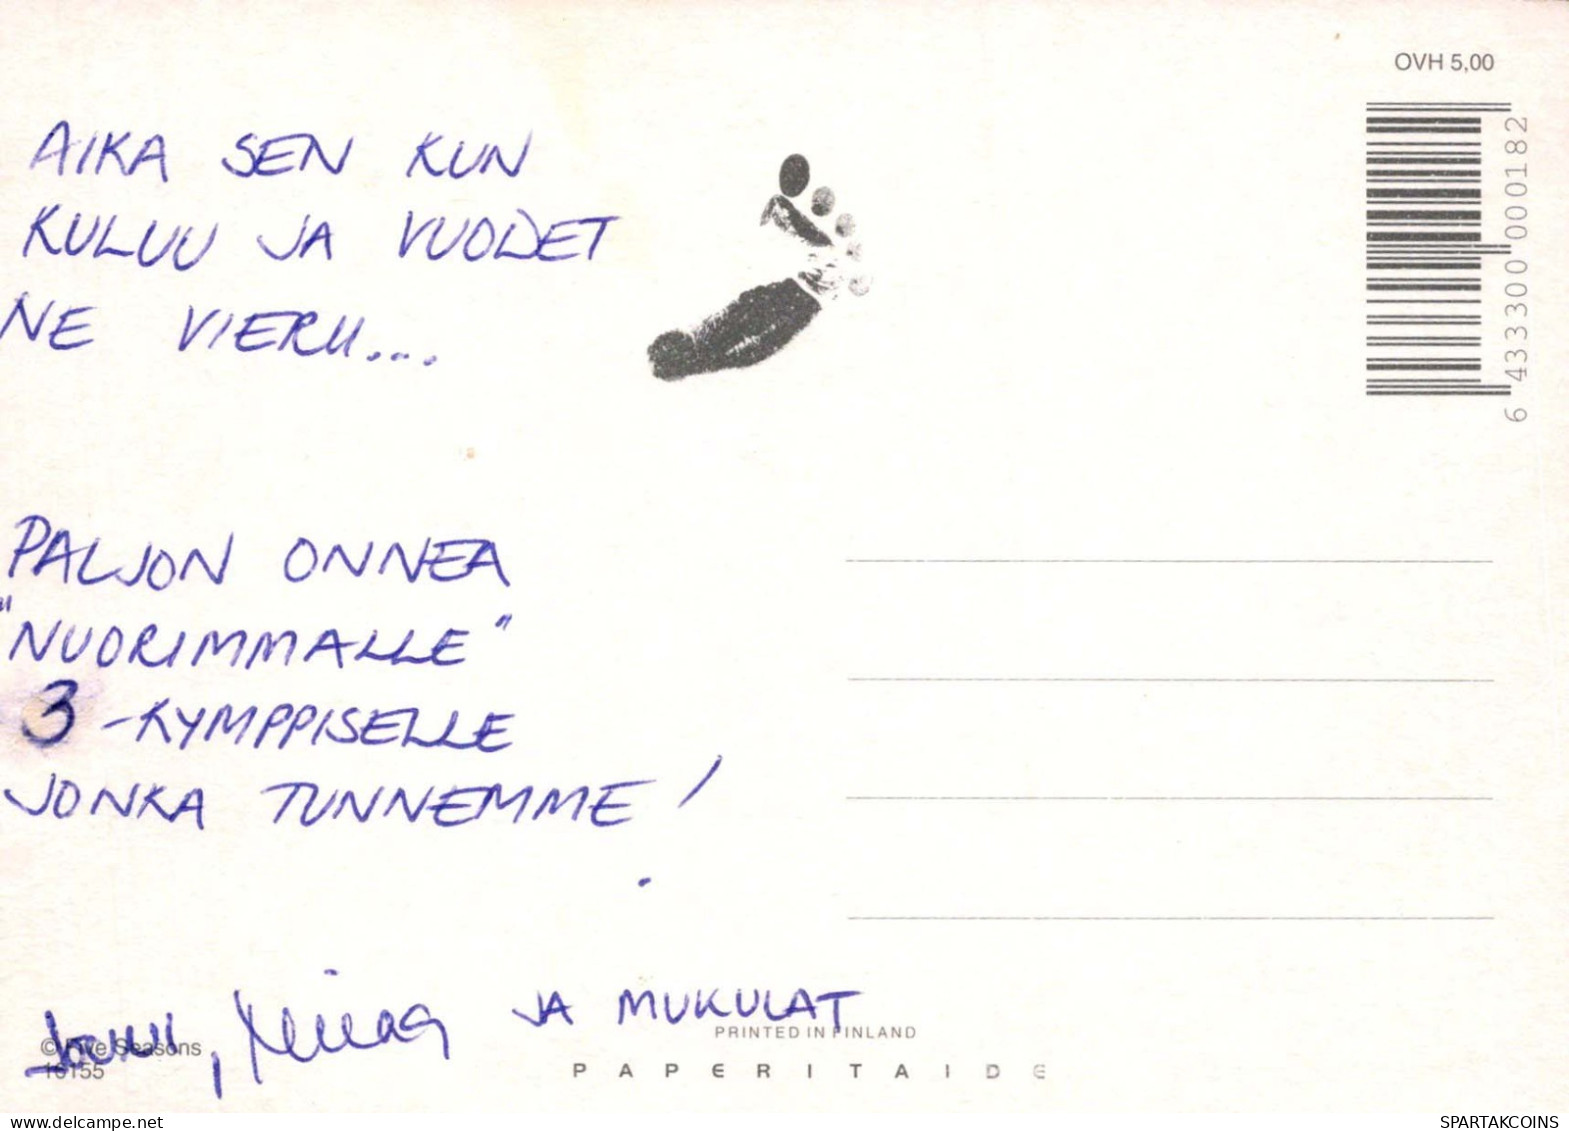 OVH 5,00
6 433300 000182
AIKA SEN KUN
KULUU JA VUODET
NE VIERU....
PALJON ONNEA
"NUORIMMALLE"
3 -KYMPPISELLE
JONKA TUNNEMME !
JA MUKULAT
© Five Seasons
16155
PRINTED IN FINLAND
PAPERITAIDE
delcampe.net
your name
SPARTAKCOINS